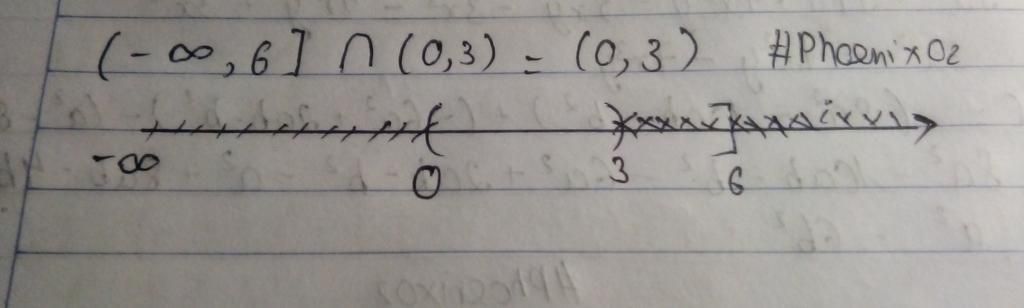 (-∞,6] ∩ (0,3) = (0,3) #PhoenixO2
-∞ 0 3 6